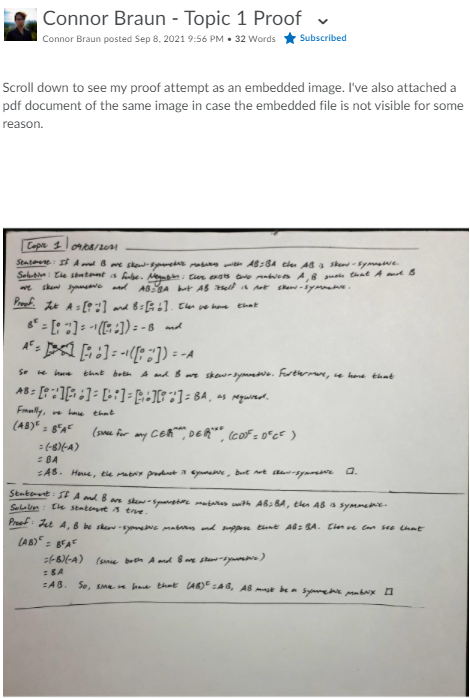 Connor Braun - Topic 1 Proof
Connor Braun posted Sep 8, 2021 9:56 PM • 32 Words ★ Subscribed
Scroll down to see my proof attempt as an embedded image. I've also attached a
pdf document of the same image in case the embedded file is not visible for some
reason.
Topic 1 09/08/2021
Statement: If A and B are skew-symmetric matrices with AB=BA then AB is skew-symmetric.
Solution: The statement is false. Negation: there exists two matrices A, B such that A and B
are skew symmetric and AB=BA but AB itself is not skew-symmetric.
Proof: Let A = and B = . Then we have that
= -B and
= -A
So we have that both A and B are skew-symmetric. Furthermore, we have that
AB = = BA, as required.
Finally, we have that
(AB)ᵗ = BᵗAᵗ (since for any
=(-B)(-A)
= BA
= AB. Hence, the matrix product is symmetric, but not skew-symmetric □.
Statement: If A and B are skew-symmetric matrices with AB=BA, then AB is symmetric.
Solution: The statement is true.
Proof: Let A, B be skew-symmetric matrices and suppose that AB=BA. Then we can see that
(AB)ᵗ = BᵗAᵗ
=(-B)(-A) (since both A and B are skew-symmetric)
= BA
= AB. So, since we have that (AB)ᵗ = AB, AB must be a symmetric matrix □